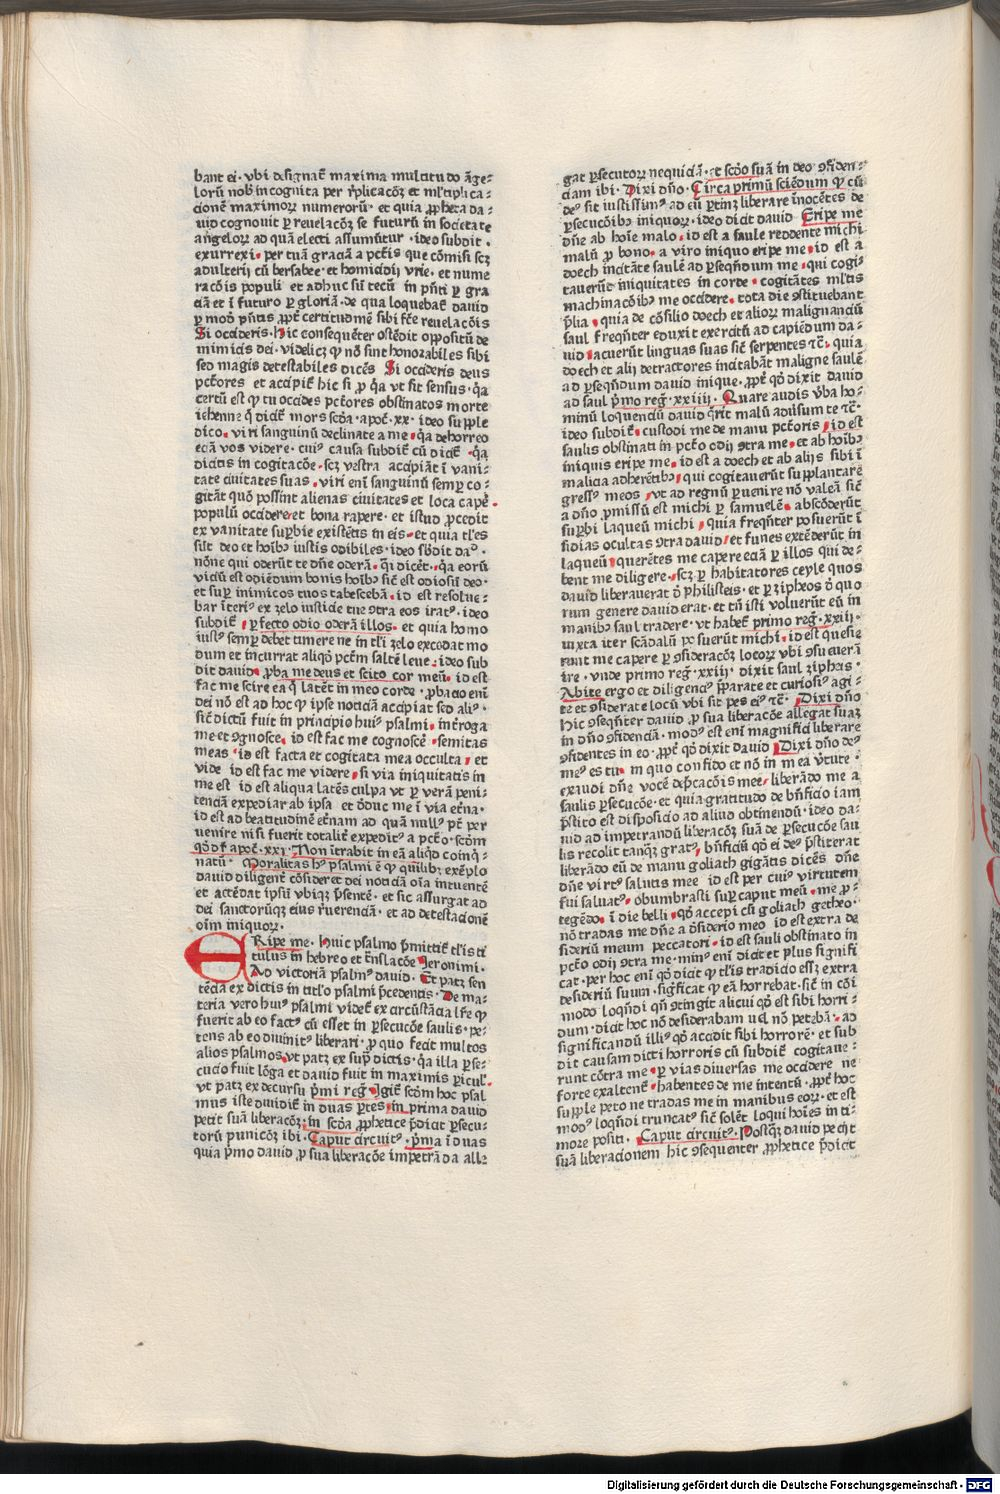 bant ei · vbi designat᷑ maxima multitudo ãge⸗
lorũ nob᷒ incognita per r̃plicacōꝫ et ml̃tiplica⸗
cionē maximoꝝ numerorũ · et quia ꝓpheta da⸗
uid cognouit ꝑ reuelacōꝫ se futurũ in societate
angeloꝝ ad quã electi assumũtur · ideo subdit ·
exurrexi · per tuã graciã a pctĩs que cōmisi scꝫ
adulterij cũ bersabee · et homicidij vrie · et nume
racōis populi et adhuc sũ tecũ in pñti ꝑ gra
ciã et ĩ futuro ꝑ gloriã · de qua loquebat᷑ dauid
ꝑ modũ pñtis ꝓpt᷑ certitudinē sibi fc̃e reuelacōis
Si occideris · Hic consequēter oñdit oppositũ de
inimicis dei · videlicꝫ ꝙ nō sunt honorabiles sibi
sed magis detestabiles dicēs Si occideris deus
pctõres et accipit᷑ hic si ꝓ q̃a vt sit sensus · q̃a
certũ est ꝙ tu occides pctõres obstinatos morte
iehenne q̃ dicit᷑ mors scd̃a · apoc᷑ · xx · ideo supple
dico · viri sanguinũ declinate a me · q̃a dehorreo
eciã vos videre · cui⁹ causa subdit᷑ cũ dicit᷑ · q̃a
dicitis in cogitacōe · scꝫ vestra accipiãt ĩ vani⸗
tate ciuitates suas · viri enĩ sanguinũ semꝑ co⸗
gitãt quõ possint alienas ciuitates et loca cape᷑ ·
populũ occidere et bona rapere · et istud ꝓcedit
ex vanitate suꝑbie existētis in eis · et quia tl̃es
sũt deo et hoĩbꝫ iustis odibiles · ideo sb̃dit da⁹ ·
nōne qui oderũt te dñe oderã · q̃i dicet᷑ · q̃a eorũ
viciũ est odiēdum bonis hoĩbꝫ sic̃ est odiosũ deo ·
et suꝑ inimicos tuos tabescebã · id est resolue⸗
bar ĩteri⁹ ex zelo iusticie tue ↄtra eos irat⁹ · ideo
subdit᷑ · ꝑfecto odio oderã illos · et quia homo
iust⁹ semꝑ debet timere ne in tl̃i zelo excedat mo
dum et incurrat aliqđ pctm̃ saltē leue · ideo sub
dit dauid · ꝓba me deus et scito cor meũ · id est
fac me scire ea q̃ latēt in meo corde · ꝓbacio enĩ
dei nō est ad hoc ꝙ ipse noticiã accipiat sed ali⁹ ·
sic̃ dictũ fuit in principio hui⁹ psalmi · inťroga
me et ↄgnosce · id est fac me cognosce᷑ · semitas
meas · id est facta et cogitata mea occulta · et
vide id est fac me videre · si via iniquitatis in
me est id est aliqua latēs culpa vt ꝑ verã peni⸗
tenciã expediar ab ipsa et đduc me ĩ via etña ·
id est ad beatitudinē etñam ad quã null⁹ pt᷑ per
uenire nisi fuerit totalit᷑ expedit⁹ a pctõ · scđm
qđ đr̃ apoc᷑ · xxi · Non ĩtrabit in eã aliqđ coinq̃⸗
natũ · Moralitas h⁹ psalmi ē ꝙ quilibꝫ exēplo
dauid diligent᷑ cōsideret dei noticiã oĩa intuentē
et accēdat ipsũ vbiqꝫ p̃sentē · et sic assurgat ad
dei sanctorũqꝫ eius r̃uerenciã · et ad detestacionē
oĩm iniquoꝝ ·
ERipe me · Huic psalmo p̃mittit᷑ tl̃is ti
tulus in hebreo et tñslacōe Jeronimi ·
Ad victoriã psalm⁹ dauid · Et patꝫ sen
tēcia ex dictis in titl̃o psalmi p̃cedentis · De ma⸗
teria vero hui⁹ psalmi videt᷑ ex circũstãcia lr̃e ꝙ
fuerit ab eo fact⁹ cũ esset in ꝑsecucōe saulis · pe⸗
tens ab eo diuinit⁹ liberari · ꝓ quo fecit multos
alios psalmos vt patꝫ ex sup̃dictis · q̃a illa ꝑse⸗
cucio fuit lōga et dauid fuit in maximis ꝑicul᷒ ·
vt patꝫ ex decursu p̃mi reg᷑ · Igit᷑ scđm hoc psal
mus iste diuidit᷑ in duas ꝑtes · in prima dauid
petit suã liberacōꝫ · in scđa ꝓphetice p̃dicit ꝑsecu⸗
torũ punicōꝫ ibi · Caput circuit⁹ · p̃ma ĩ duas
quia p̃mo dauid ꝓ sua liberacōe impetrãda alle
gat ꝑsecutoꝝ nequiciã · et scđo suã in deo ↄfiden⸗
ciam ibi · Dixi dño · Circa primũ sciēdum ꝙ cũ
de⁹ sit iustissim⁹ ad eũ ꝑtinꝫ liberare ĩnocētes de
ꝑsecucōibꝫ iniquoꝝ · ideo dicit dauid Eripe me
dñe ab hoĩe malo · id est a saule reddente michi
malũ ꝓ bono · a viro iniquo eripe me · id est a
doech incitãte saulē ad ꝑseq̃ndum me · qui cogi⸗
tauerũt iniquitates in corde · cogitãtes ml̃tis
machinacōibꝫ me occidere · tota die ↄstituebant
p̃lia · quia de cōsilio doech et alioꝝ malignanciũ
saul freq̃nter eduxit exercitũ ad capiēdum da⸗
uid · acuerũt linguas suas sic̃ serpentes ⁊c̃ · quia
doech et alij detractores incitabãt maligne saulē
ad ꝑseq̃ndum dauid inique · ꝓpt᷑ qđ dixit dauid
ad saul p̃mo reg᷑ · xxiiij · Quare audis v̾ba ho⸗
minũ loquenciũ dauid q̃rit malũ adu̾sum te ⁊c̃ ·
ideo subdit᷑ · custodi me de manu pctõris · id est
saulis obstinati in pctõ odij ↄtra me · et ab hoĩbꝫ
iniquis eripe me · id est a doech et ab alijs sibi ĩ
malicia adherētibꝫ · qui cogitauerũt supplantare
gress⁹ meos · vt ad regnũ ꝑuenire nō valeã sic̃
a dño ꝓmissũ est michi ꝑ samuelē · absconderũt
suꝑbi laqueũ michi · quia freq̃nter posuerũt ĩ
sidias ocultas ↄtra dauid · et funes extēderũt in
laqueũ · querētes me capere eciã ꝑ illos qui de⸗
bent me diligere · scꝫ ꝑ habitatores ceyle quos
dauid liberauerat đ philisteis · et ꝑ zipheos đ quo
rum genere dauid erat · et tñ isti voluerũt eũ in
manibꝫ saul tradere · vt habet᷑ primo reg᷑ · xxiij ·
iuxta iter scãdalũ posuerũt michi · id est quesie
runt me capere ꝑ ↄsideracōꝫ locoꝝ vbi ↄsueuerã
ire · vnde primo reg᷑ · xxiij · dixit saul zipheis ·
Abite ergo et diligenci⁹ p̃parate et curiosi⁹ agi⸗
te et ↄsiderate locũ vbi sit pes ei⁹ ⁊c̃ · Dixi dño
Hic ↄseq̃nter dauid ꝓ sua liberacōe allegat suaꝫ
in dño ↄfidenciã · mod⁹ est enĩ magnifici liberare
ↄfidentes in eo · ꝓpt᷑ qđ dixit dauid Dixi dño de⁹
me⁹ es tu · in quo confido et nō in mea v̾tute ·
exaudi dñe vocē dep̃cacōis mee · liberãdo me a
saulis ꝑsecucōe · et quia gratitudo de bñficio iam
p̃stito est disposicio ad aliud obtinendũ · ideo da⸗
uid ad impetrandũ liberacōꝫ suã de ꝑsecucōe sau
lis recolit tanqꝫ grat⁹ · bñficiũ qđ ei de⁹ p̃stiterat
liberãdo eũ de manu goliath gigãtis dicēs dñe
dñe virt⁹ salutis mee id est per cui⁹ virtutem
fui saluat⁹ · obumbrasti suꝑ caput meũ · me ꝓ⸗
tegēdo · ĩ die belli · qđ accepi cũ goliath getheo ·
nō tradas me dñe a đsiderio meo id est extra de
sideriũ meum peccatori · id est sauli obstinato in
pctõ odij ↄtra me · min⁹ enĩ dicit et plus signifi
cat · per hoc enĩ qđ dicit ꝙ tl̃is tradicio essꝫ extra
desideriũ suum · sigficat ꝙ eã horrebat · sic̃ in cōi
modo loqñdi qñ ↄtingit alicui qđ est sibi horri⸗
dum · dicit hoc nō desiderabam uel nō petebã · ad
significandũ illi⁹ qđ accidit sibi horrorē · et sub
dit causam dicti horroris cũ subdit᷑ cogitaue⸗
runt cōtra me · ꝑ vias diuersas me occidere ne
forte exaltent᷑ · habentes de me intentũ · ꝓpt᷑ hoc
supple peto ne tradas me in manibus eoꝝ · et est
mod⁹ loqñdi truncat⁹ sic̃ solēt loqui hoĩes in ti⸗
more positi · Caput circuit⁹ · Postqꝫ dauid pecijt
suã liberacionem hic ↄsequenter ꝓphetice p̃dicit
Digitalisierung gefördert durch die Deutsche Forschungsgemeinschaft - DFG